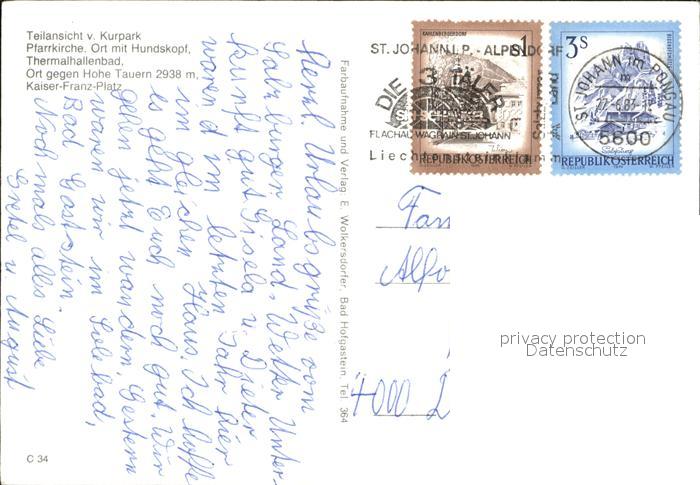 Teilansicht v. Kurpark
Pfarrkirche. Ort mit Hundskopf,
Thermalhallenbad,
Ort gegen Hohe Tauern 2938 m,
Kaiser-Franz-Platz
Herzl. Urlaubsgrüße vom
Salzburger Land, Wetter Unter-
kunft gut. Gisela u. Dieter
waren im letzten Jahr hier
im gleichen Haus. Ich hoffe
es geht Euch noch gut. Wir
gehn jetzt wandern. Gestern
waren wir im Solebad,
Bad Gastein.
Nochmals alles Liebe
Gretel u August
C 34
Farbaufnahme und Verlag E. Wolkersdorfer, Bad Hofgastein, Tel. 364
KAHLENBERGERDORF
S1
ST. JOHANN I. P. - ALPENDORF
DIE 3 TÄLER
FLACHAU WAGRAIN ST. JOHANN
Wien
REPUBLIK ÖSTERREICH
3S
ST. JOHANN im PONGAU
5600
Salzburg
REPUBLIK ÖSTERREICH
Fam
Alfo
4000 L
privacy protection
Datenschutz